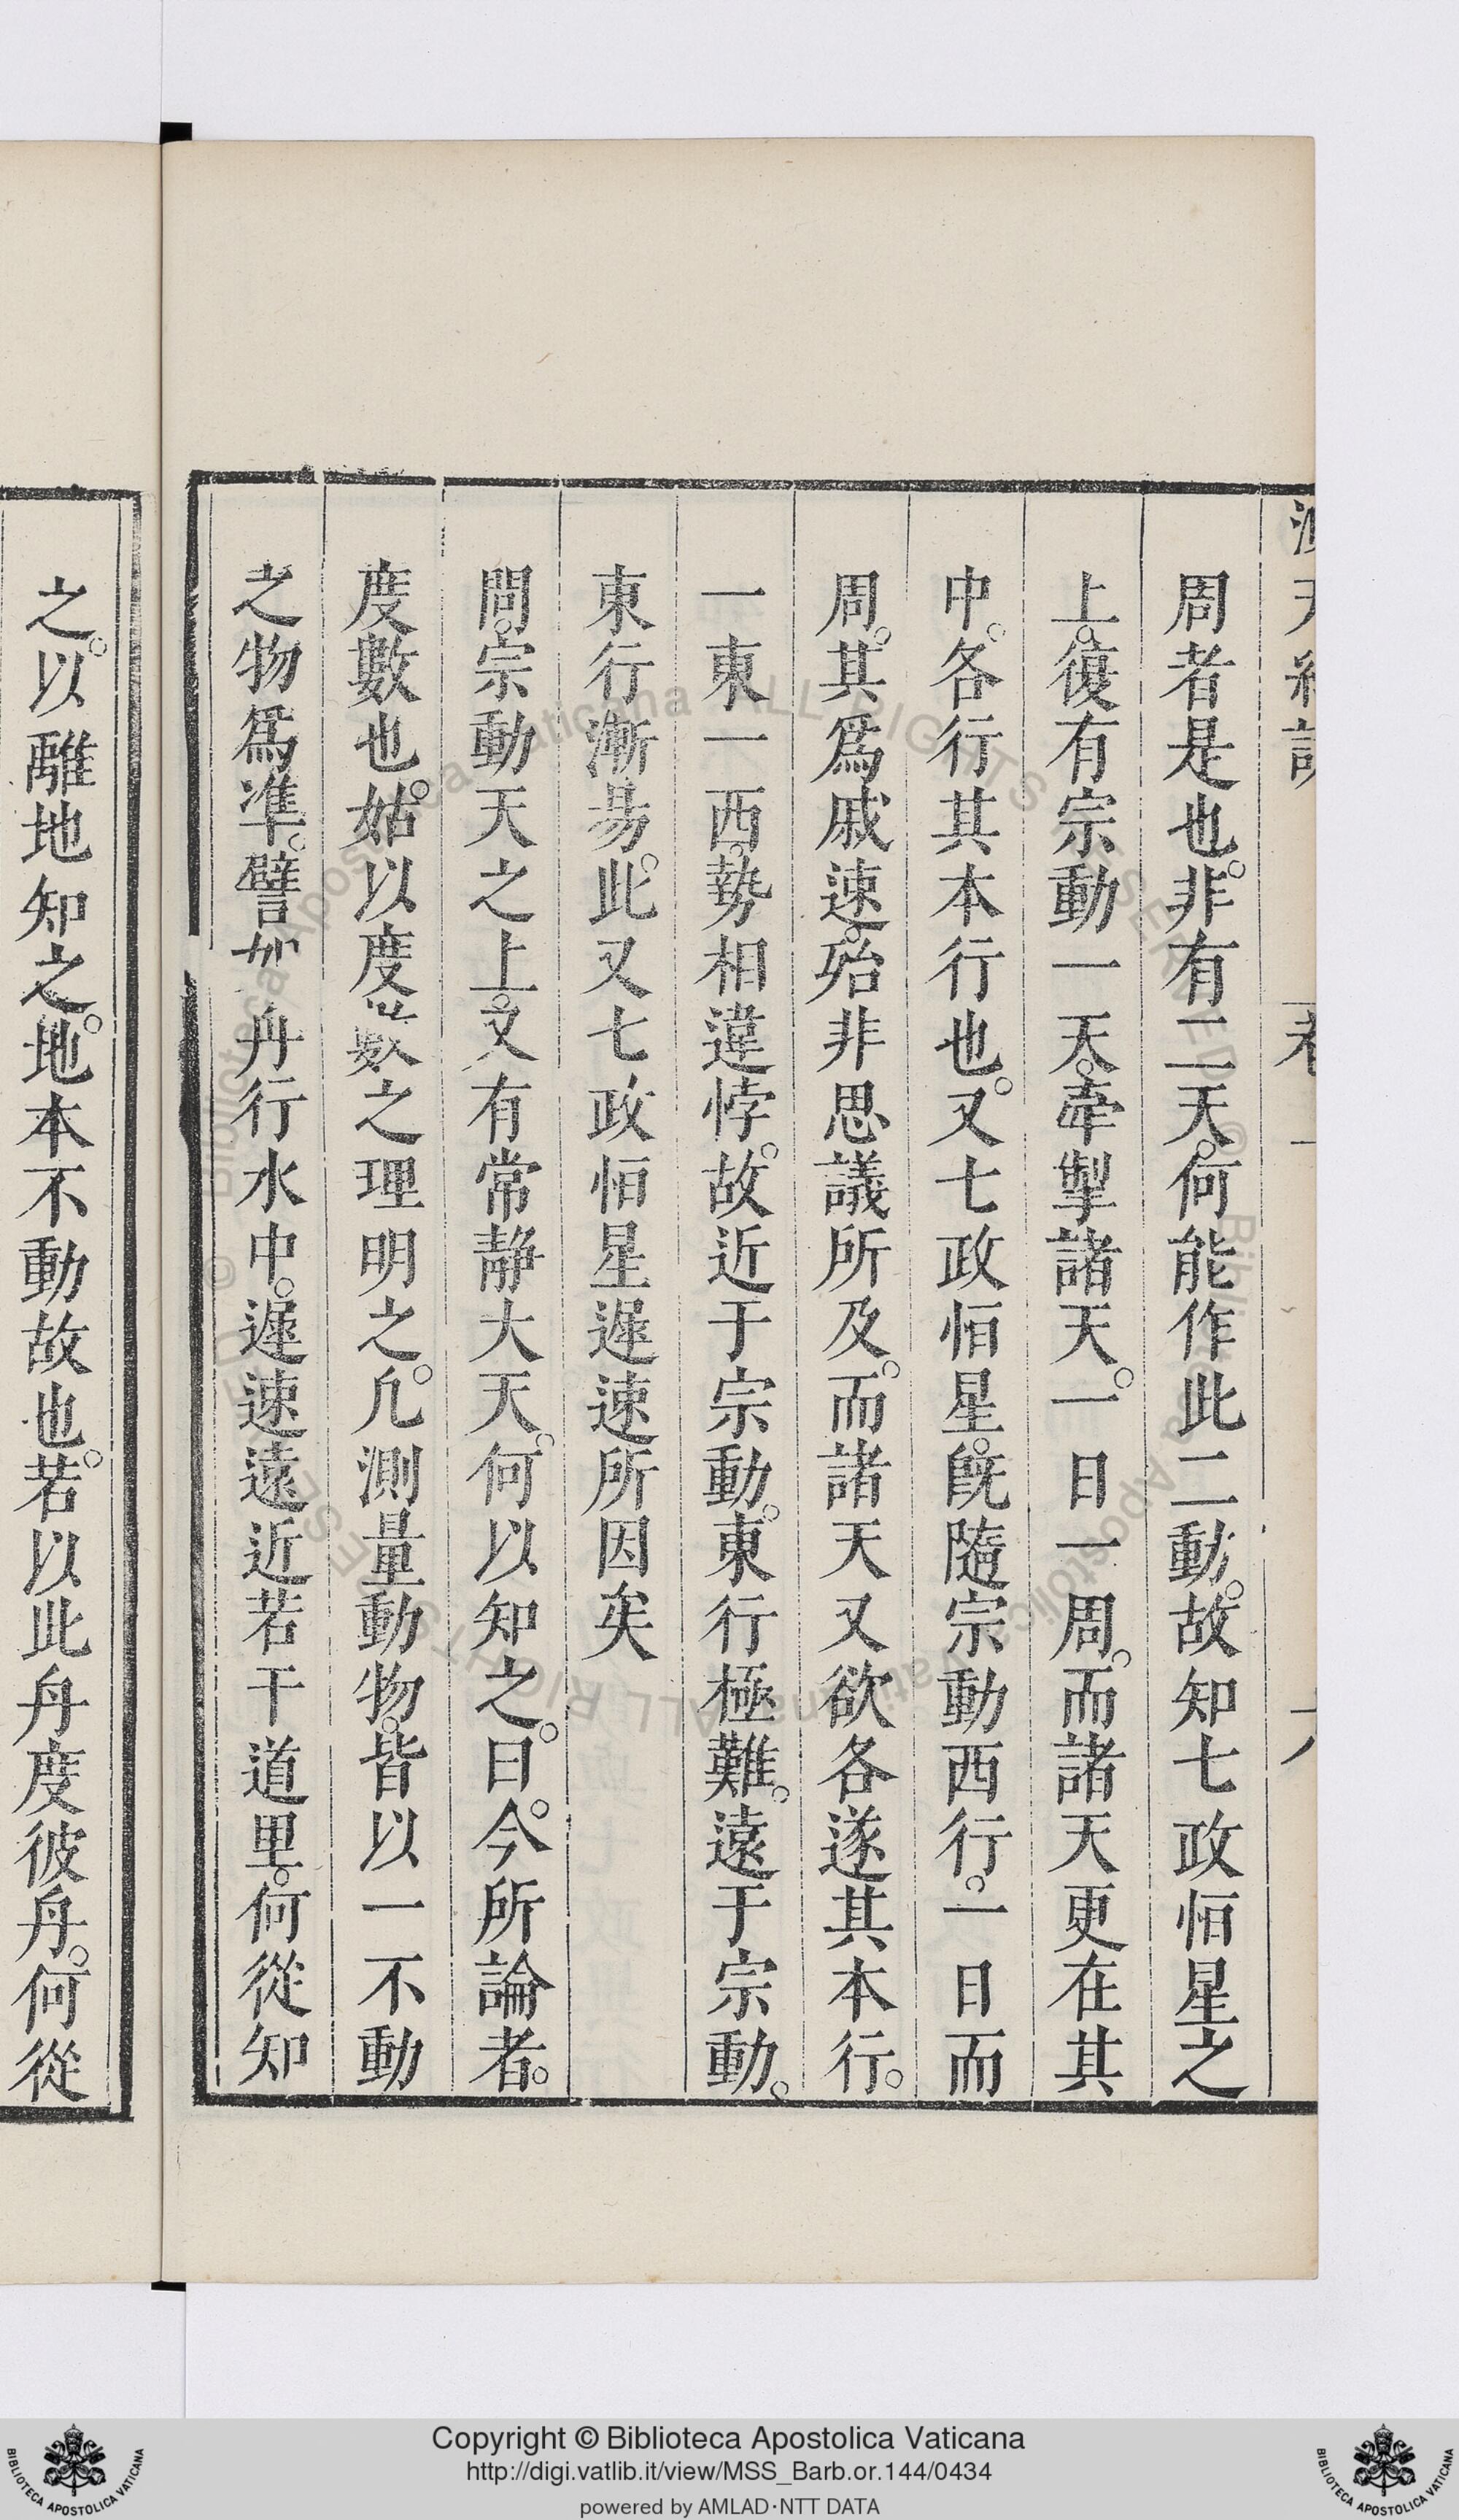 周者是也。非有二天。何能作此二動。故知七政恒星之
上。復有宗動一天。牽掣諸天。一日一周。而諸天更在其
中。各行其本行也。又七政恒星。旣隨宗動西行。一日而
周。其爲戚速。殆非思議所及。而諸天又欲各遂其本行。
一東一西。勢相違悖。故近于宗動。東行極難。遠于宗動。
東行漸昜。此又七政恒星遲速所因矣
問。宗動天之上。又有常靜大天。何以知之。曰。今所論者。
度數也。姑以度數之理明之。凡測量動物。皆以一不動
之物爲準。譬如舟行水中。遲速遠近若干道里。何從知
之。以離地知之。地本不動故也。若以此舟度彼舟。何從
Copyright © Biblioteca Apostolica Vaticana
http://digi.vatlib.it/view/MSS_Barb.or.144/0434
powered by AMLAD·NTT DATA
BIBLIOTECA APOSTOLICA VATICANA
BIBLIOTECA APOSTOLICA VATICANA